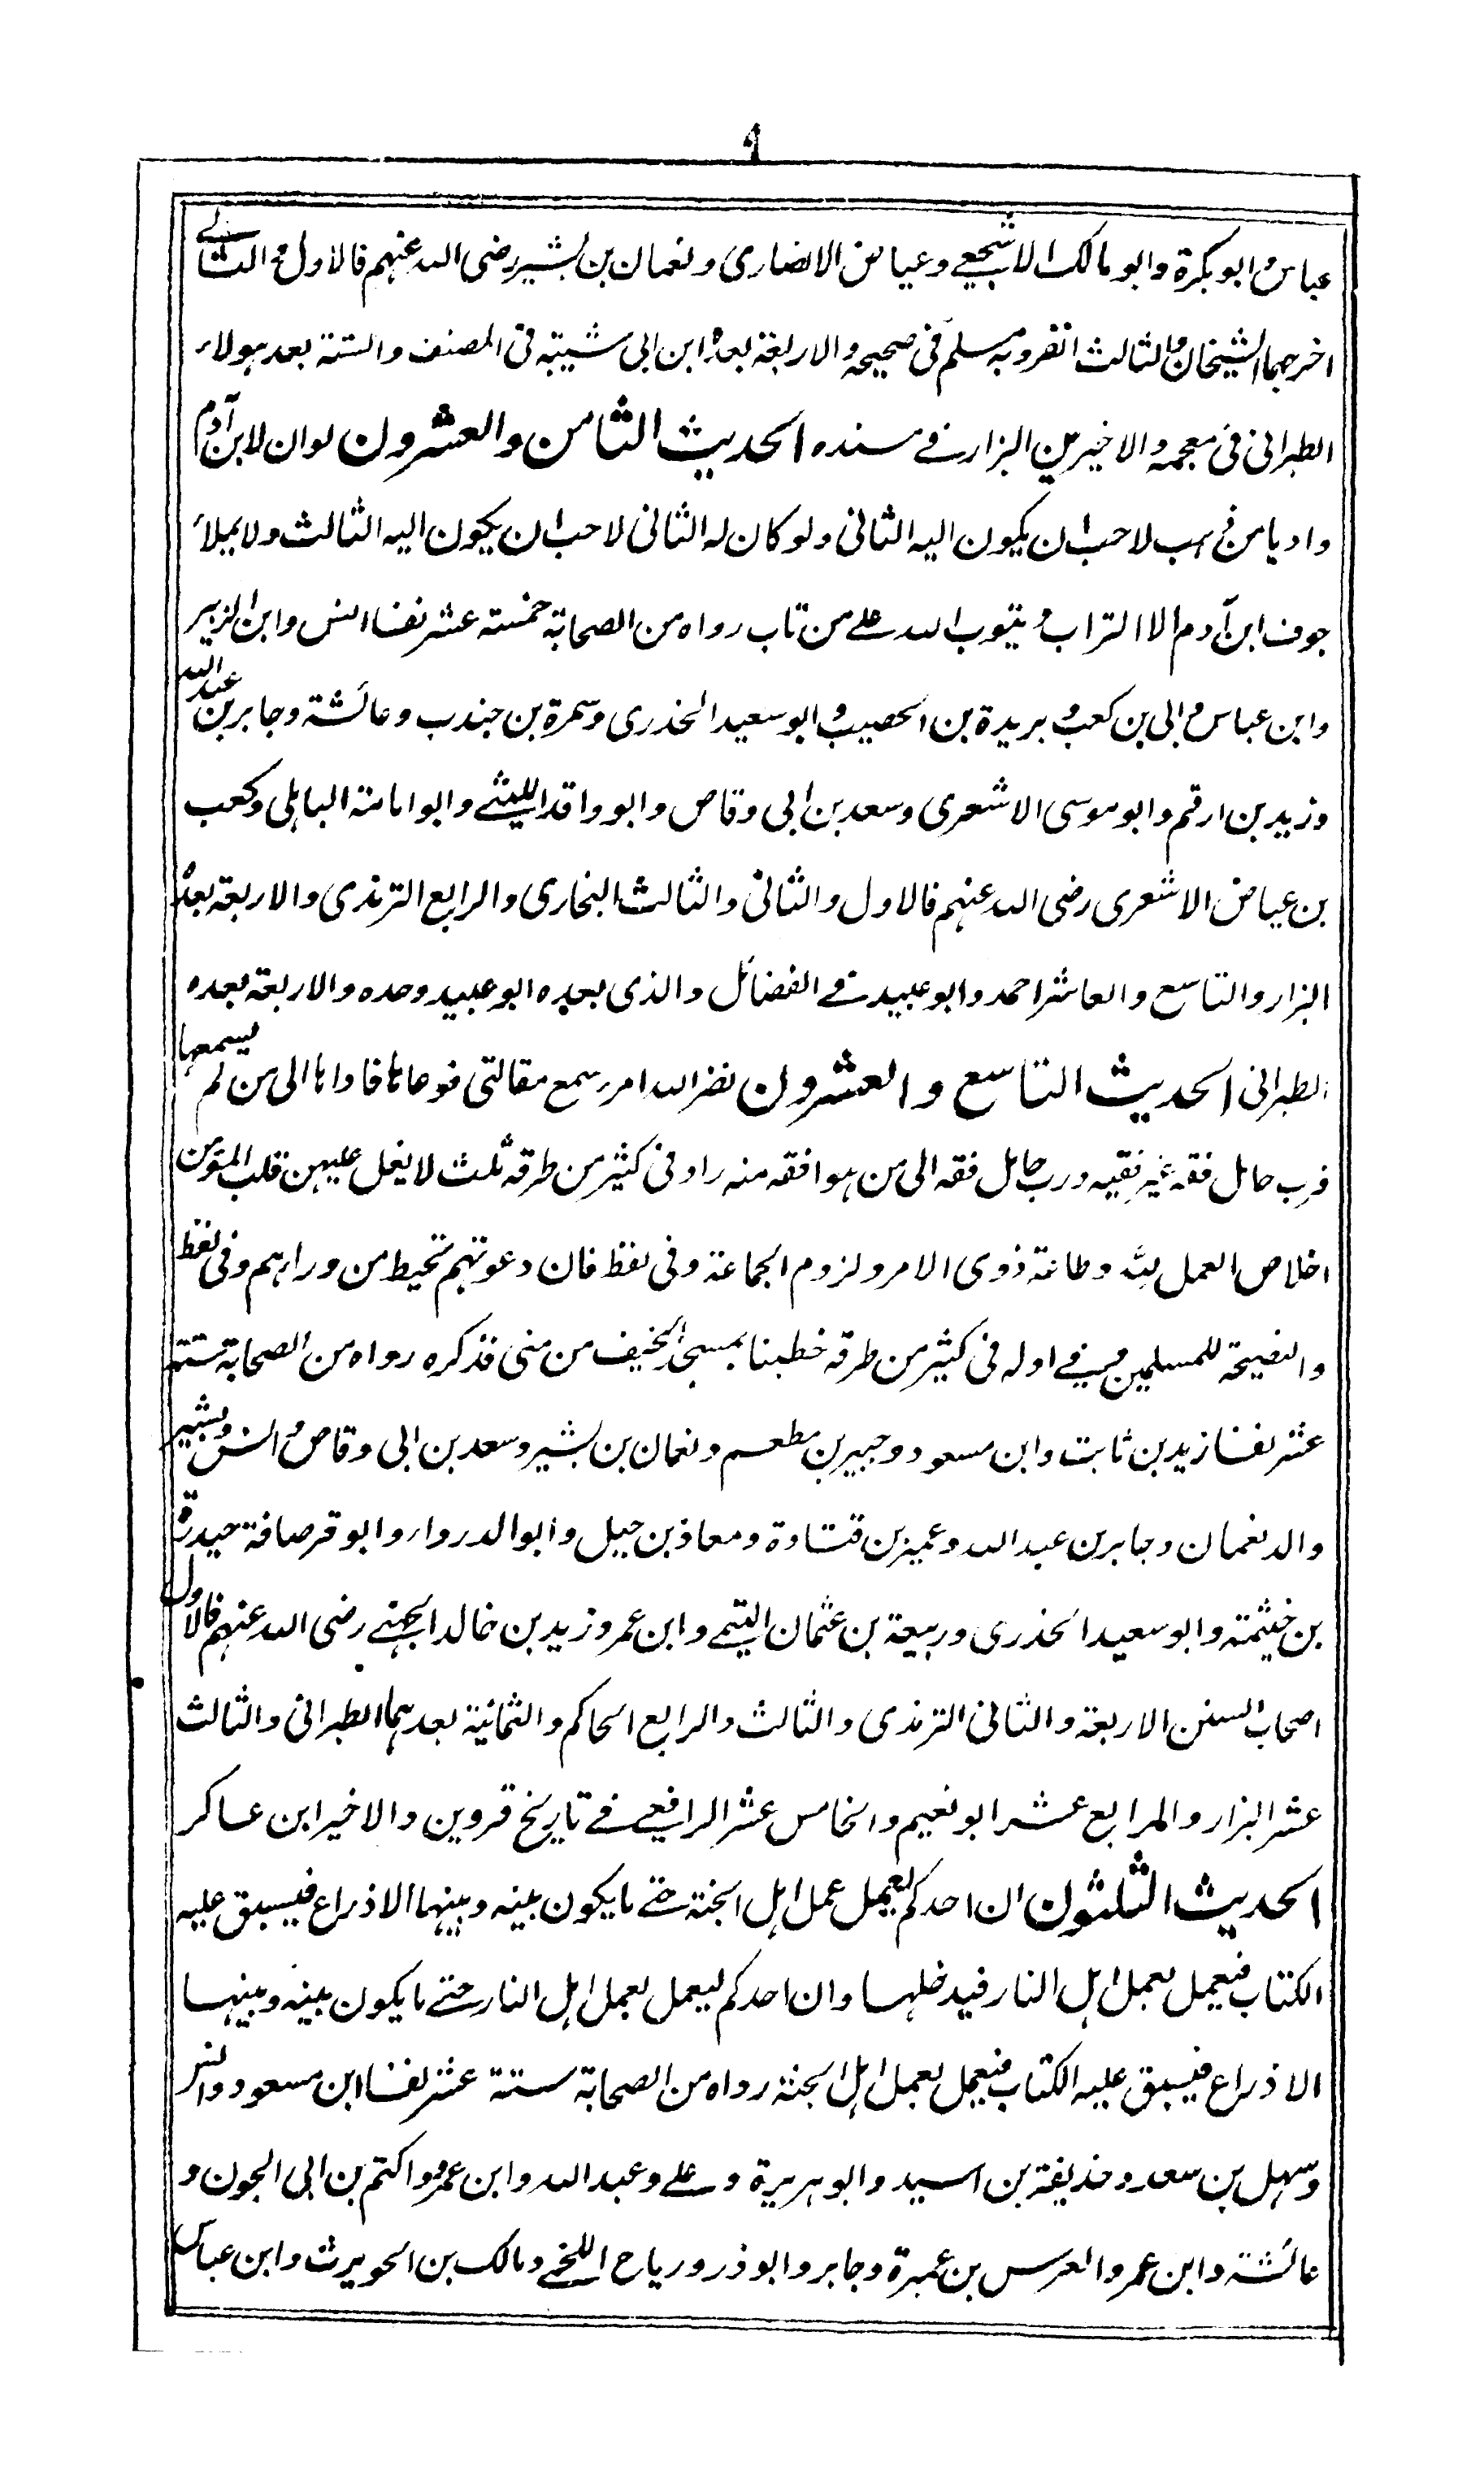 ٩
عباس و ابو بكرة وابو مالك الاشجعي وعياض الانصارى ونعمان بن بشير رضى الله عنهم فالاول و الثاني
اخرجهما الشيخان و الثالث انفرد به مسلم فى صحيحه و الاربعة بعده ابن ابى شيبة فى المصنف والستة بعد هولاء
الطبرانى فى معجمه والاخيرين البزار فے مسنده الحديث الثامن والعشرون لو ان لابن آدم
واديا من ذهب لاحب ان يكون اليه الثانى ولو كان له الثانى لاحب ان يكون اليه الثالث ولا يملأ
جوف ابن آدم الا التراب و يتوب الله علے من تاب رواه من الصحابة خمسة عشر نفسا انس وابن الزبير
وابن عباس و ابى بن كعب و بريدة بن الحصيب و ابو سعيد الخدرى وسمرة بن جندب وعائشة وجابر بن عبد الله
وزيد بن ارقم وابو موسى الاشعرى وسعد بن ابى وقاص وابو واقد الليثے وابو امامة الباهلى وكعب
بن عياض الاشعرى رضى الله عنهم فالاول والثانى والثالث البخارى والرابع الترمذى والاربعة بعده
البزار والتاسع والعاشر احمد وابو عبيد فے الفضائل والذى بعده ابو عبيد وحده والاربعة بعده
الطبرانى الحديث التاسع والعشرون نضر الله امرء سمع مقالتى فوعاها فاداها الى من لم يسمعها
فرب حامل فقه غير فقيه ورب حامل فقه الى من هو افقه منه زاد فى كثير من طرقه ثلث لا يغل عليهن قلب المؤمن
اخلاص العمل لله وطاعة ذوى الامر ولزوم الجماعة وفى لفظ فان دعوتهم تحيط من ورائهم وفى لفظ
والنصيحة للمسلمين و فے اوله فى كثير من طرقه خطبنا بمسجد الخيف من منى فذكره رواه من الصحابة ستة
عشر نفسا زيد بن ثابت وابن مسعود وجبير بن مطعم ونعمان بن بشير وسعد بن ابى وقاص و انس وبشير
والد نعمان وجابر بن عبد الله وعمير بن قتادة ومعاذ بن جبل وابو الدرداء وابو قرصافة حيدرة
بن خيثمة وابو سعيد الخدرى وربيعة بن عثمان التيمے وابن عمر وزيد بن خالد الجهنے رضى الله عنهم فالاول
اصحاب السنن الاربعة والثانى الترمذى والثالث والرابع الحاكم والثمانية بعدهما الطبرانى والثالث
عشر البزار والرابع عشر ابو نعيم والخامس عشر الرافعے فے تاريخ قزوين والاخير ابن عساكر
الحديث الثلثون ان احدكم ليعمل عمل اهل الجنة حتے ما يكون بينه وبينها الا ذراع فيسبق عليه
الكتاب فيعمل بعمل اهل النار فيدخلها وان احدكم ليعمل بعمل اهل النار حتے ما يكون بينه وبينها
الا ذراع فيسبق عليه الكتاب فيعمل بعمل اهل الجنة رواه من الصحابة ستة عشر نفسا ابن مسعود وانس
وسهل بن سعد وحذيفة بن اسيد وابو هريرة و علے وعبد الله وابن عمرو و اكتم بن ابى الجون و
عائشة وابن عمر والعرس بن عميرة وجابر وابو ذر ورياح اللخمے ومالك بن الحويرث وابن عباس